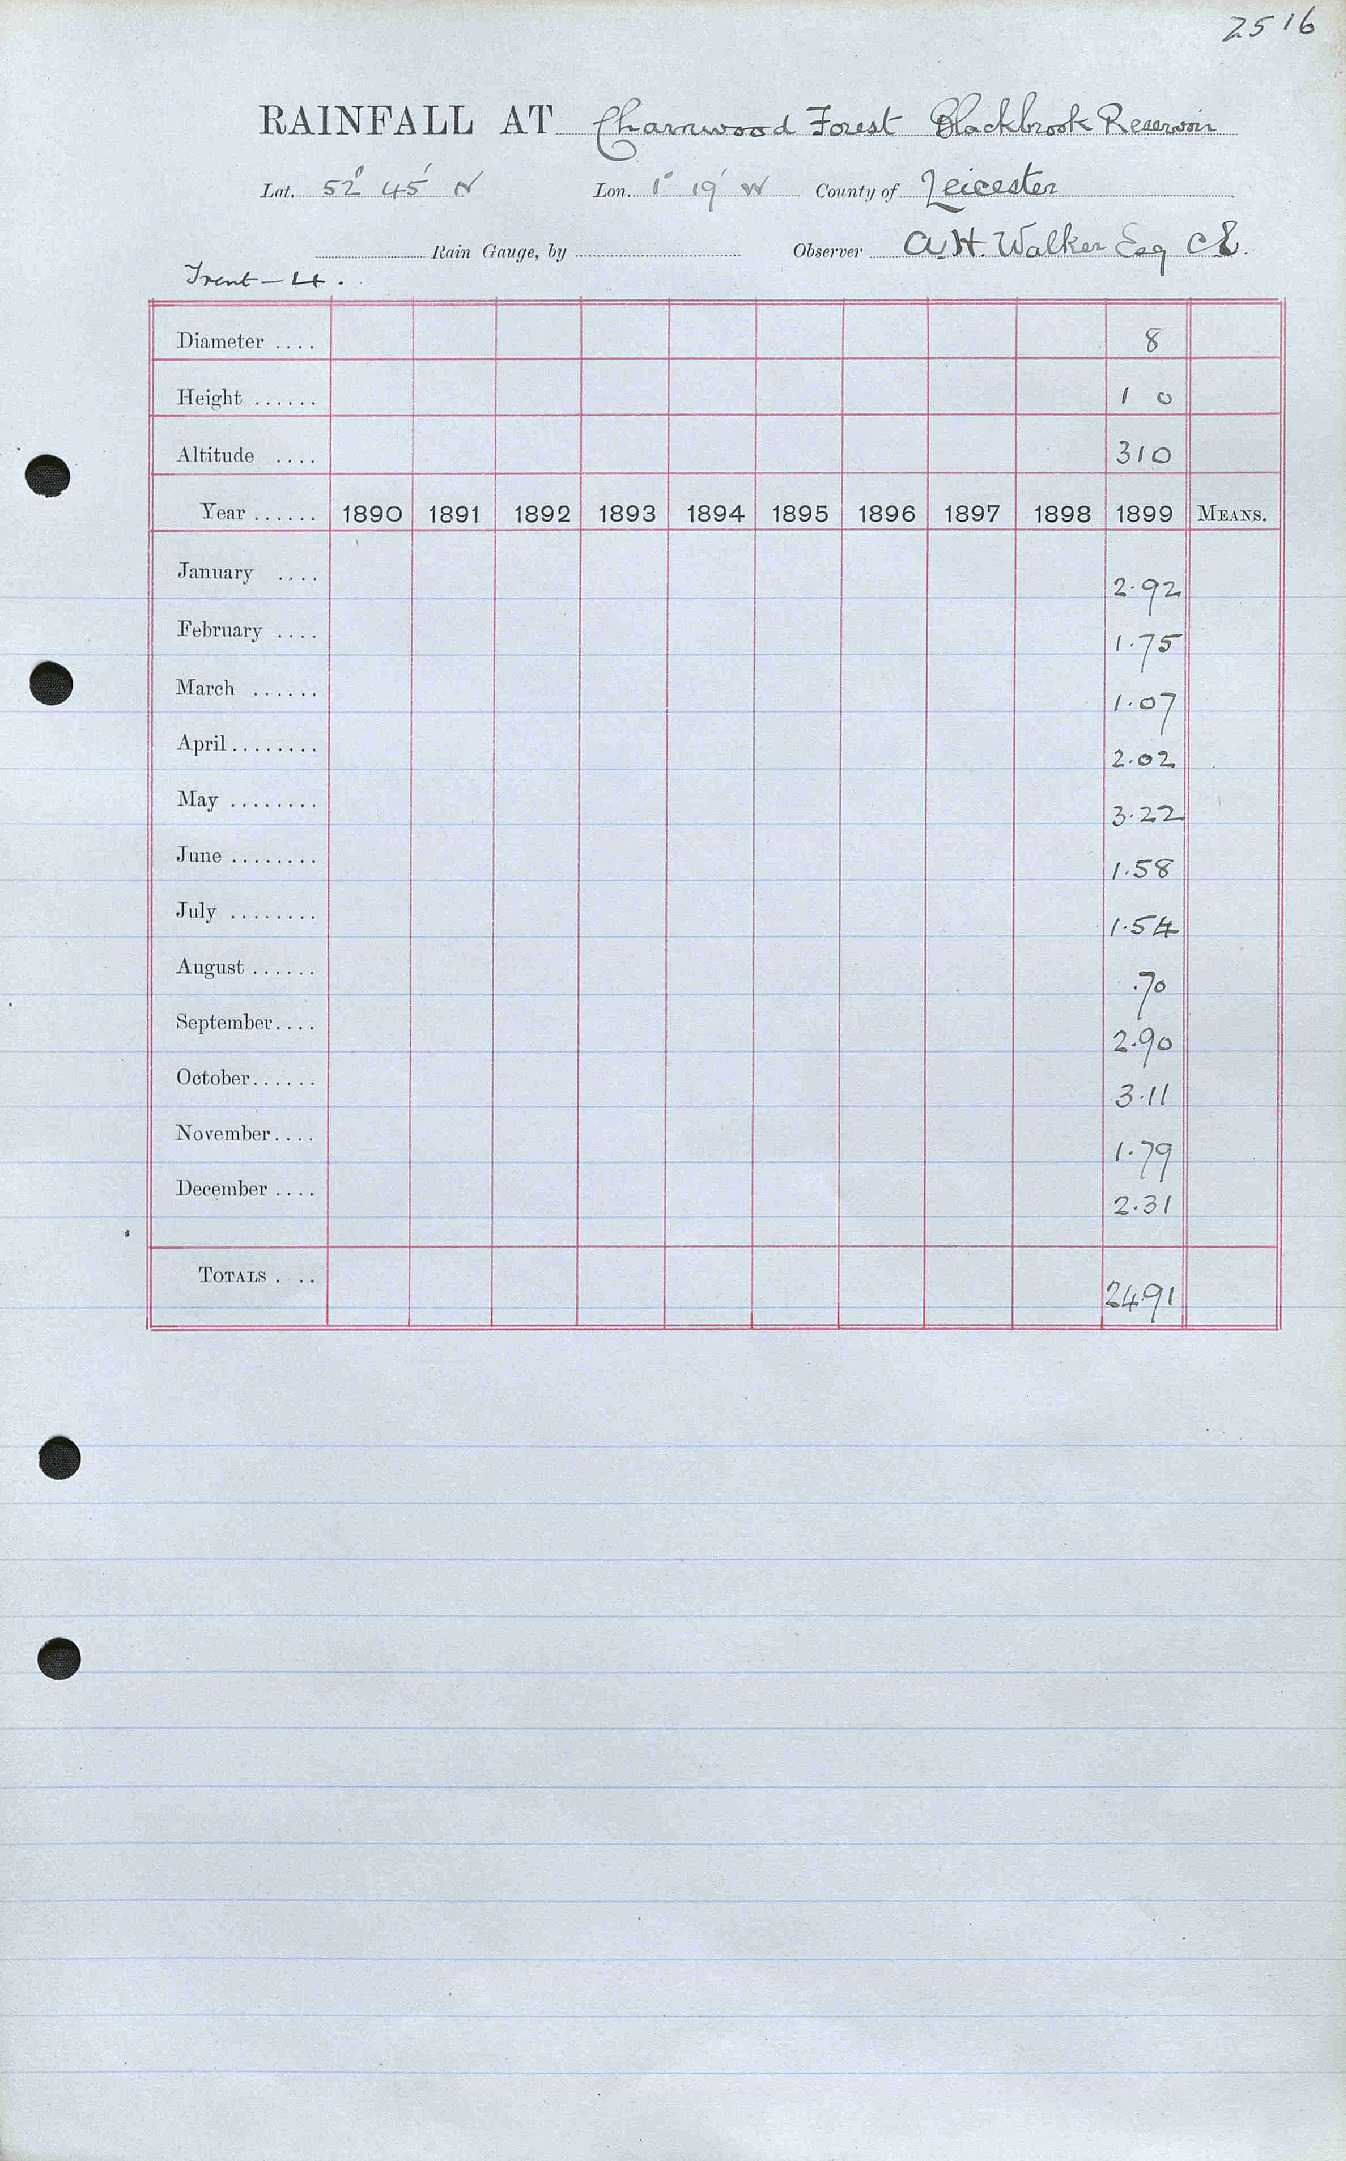 2516
RAINFALL AT Charnwood Forest Blackbrook Reservoir
Lat. 52° 45' N Lon. 1° 19' W County of Leicester
Rain Gauge, by Observer A.H. Walker Esq CE.
Trent - 4.
Diameter .... 8
Height ...... 1 0
Altitude .... 310
Year ...... 1890 1891 1892 1893 1894 1895 1896 1897 1898 1899 MEANS.
January .... 2.92
February .... 1.75
March ...... 1.07
April ........ 2.02
May ........ 3.22
June ........ 1.58
July ........ 1.54
August ...... .70
September.... 2.90
October...... 3.11
November.... 1.79
December .... 2.31
TOTALS . .. 24.91